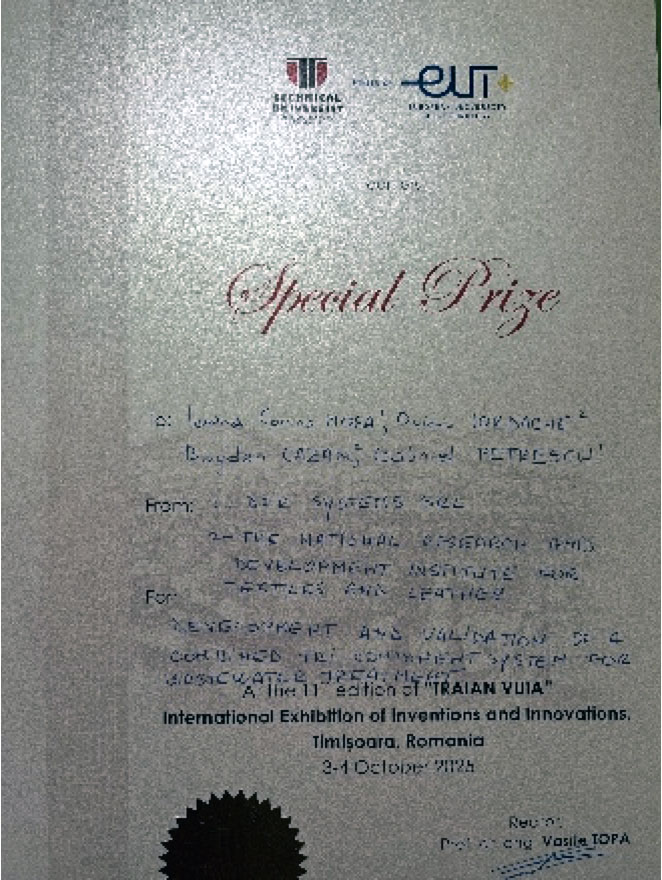 TECHNICAL
UNIVERSITY
EUT+
EUROPEAN UNIVERSITY
Special Prize
To: Ioana
Bogdan Gabriel PETRESCU¹
From: SYSTEMS SRL
2- THE NATIONAL RESEARCH AND
DEVELOPMENT INSTITUTE FOR
TEXTILES AND LEATHER
For:
DEVELOPMENT AND VALIDATION OF A
COMBINED COMPONENT SYSTEM FOR
WASTEWATER TREATMENT
At the 11th edition of "TRAIAN VUIA"
International Exhibition of Inventions and Innovations,
Timișoara, Romania
3-4 October 2025
Rector
Prof. Vasile TOPA